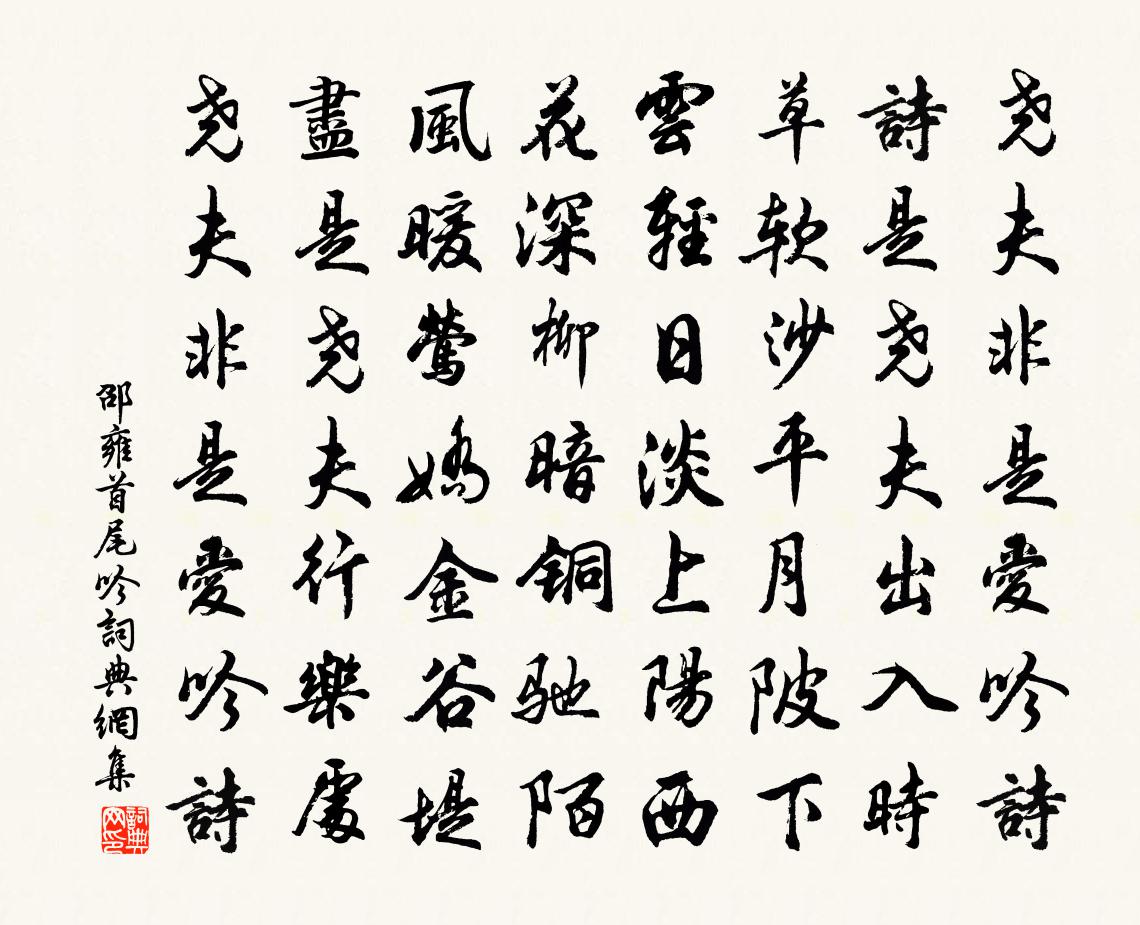 尧夫非是愛吟詩
詩是尧夫出入時
草軟沙平月陂下
雲輕日淡上陽西
花深柳暗銅駞陌
風暖鶯嬌金谷堤
盡是尧夫行樂處
尧夫非是愛吟詩
邵雍首尾吟詞典網集
詞典网印